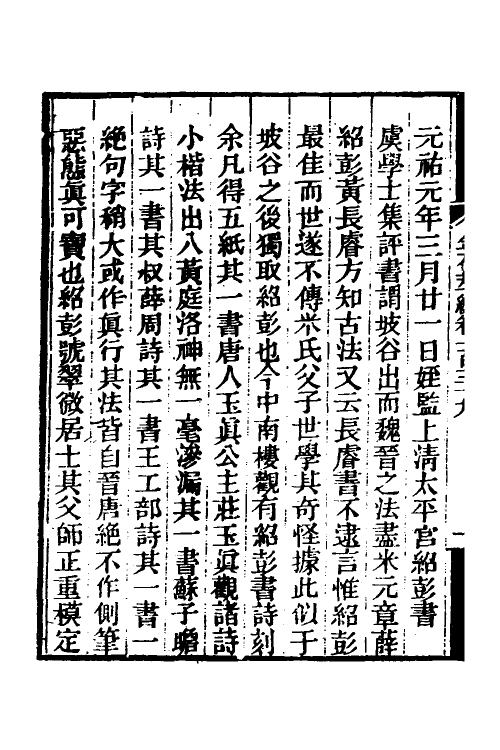 元祐元年三月廿一日姪監上清太平宮紹彭書
虞學士集評書謂坡谷出而魏晉之法盡米元章薛
紹彭黃長睿方知古法又云長睿書不逮言惟紹彭
最佳而世遂不傳米氏父子世學其奇怪據此似于
坡谷之後獨取紹彭也今中南樓觀有紹彭書詩刻
余凡得五紙其一書唐人玉眞公主莊玉眞觀諸詩
小楷法出入黃庭洛神無一毫滲漏其一書蘇子瞻
詩其一書其叔薛周詩其一書王工部詩其一書一
絕句字稍大或作眞行其法皆自晉唐絕不作側筆
惡態眞可寶也紹彭號翠微居士其父師正重模定